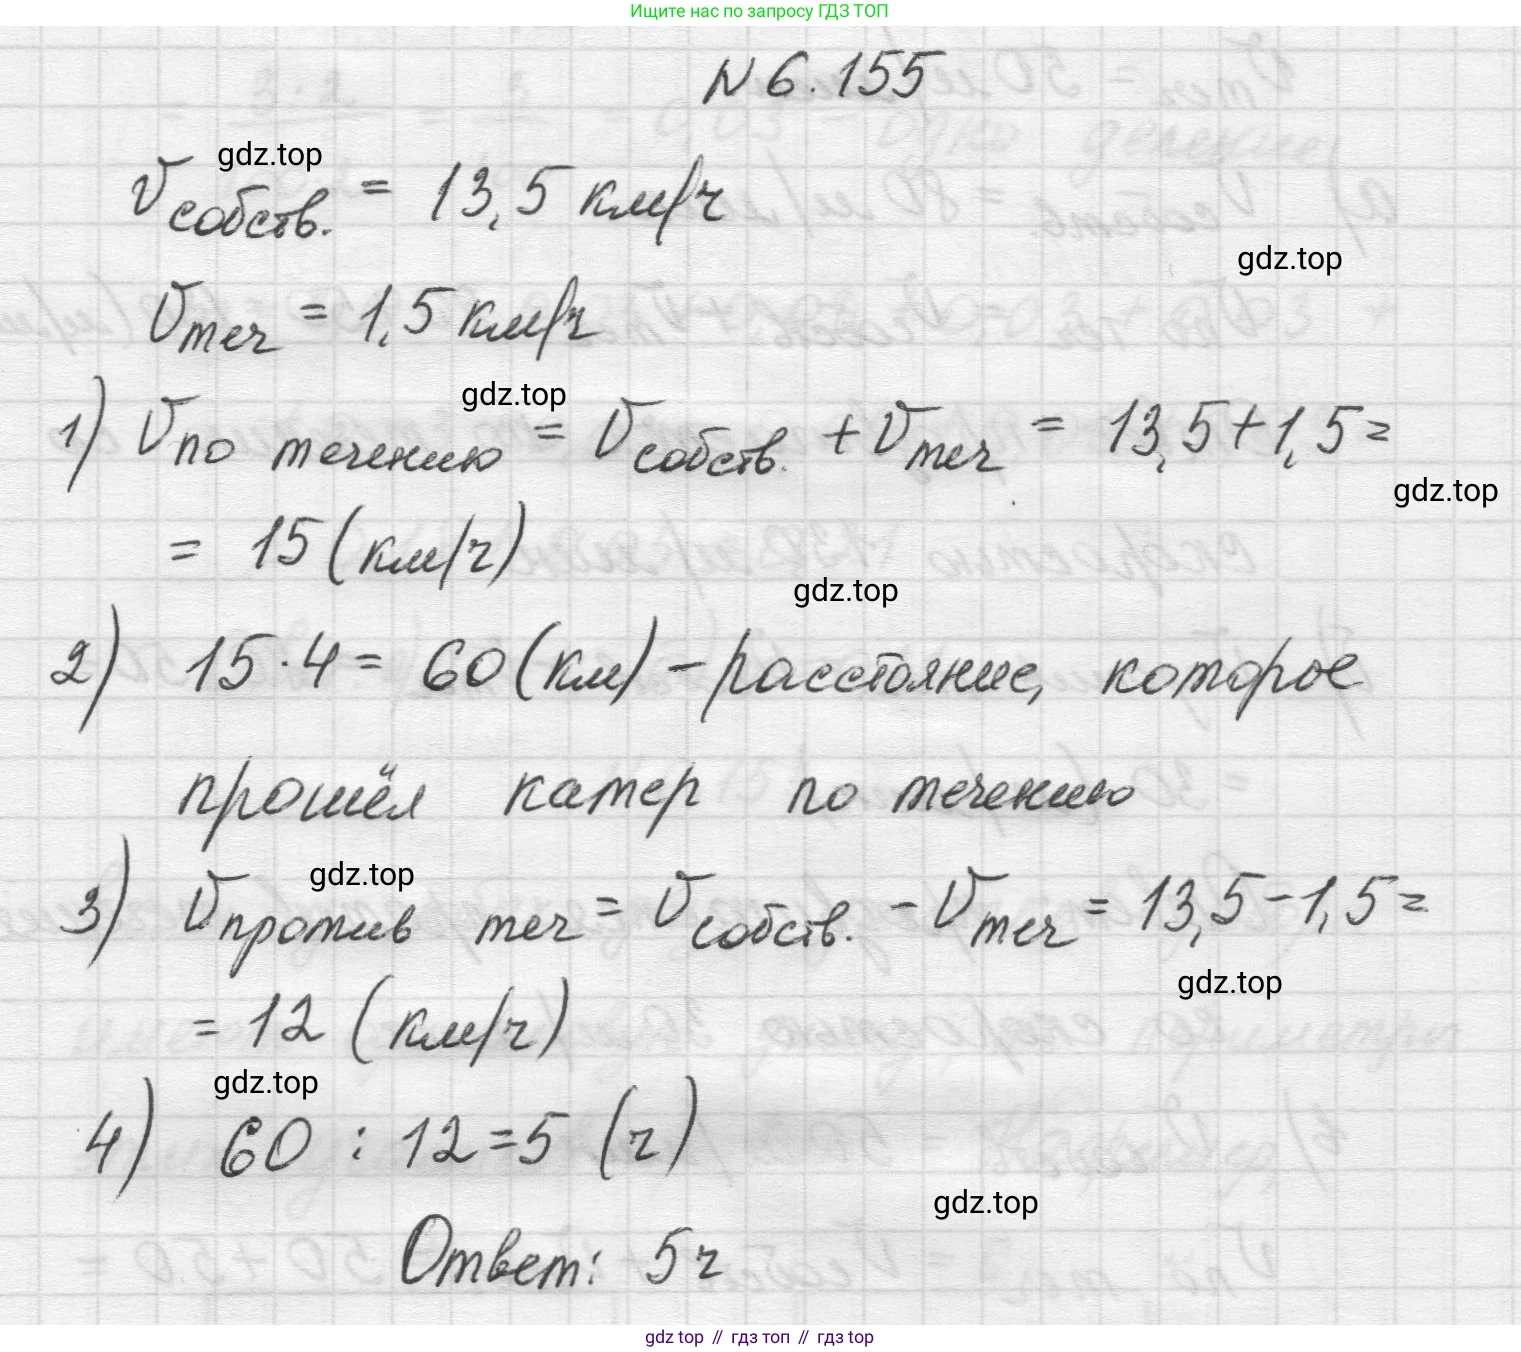 Ищите нас по запросу ГДЗ ТОП
№ 6.155
gdz.top
Vсобств. = 13,5 км/ч
gdz.top
Vтеч = 1,5 км/ч
gdz.top
1) Vпо течению = Vсобств. + Vтеч = 13,5+1,5=
gdz.top
= 15 (км/ч)
gdz.top
2) 15·4 = 60 (км) - расстояние, которое
прошёл катер по течению
gdz.top
3) Vпротив теч = Vсобств. - Vтеч = 13,5-1,5=
gdz.top
= 12 (км/ч)
gdz.top
4) 60 : 12=5 (ч)
gdz.top
Ответ: 5ч
gdz top // гдз топ // гдз top